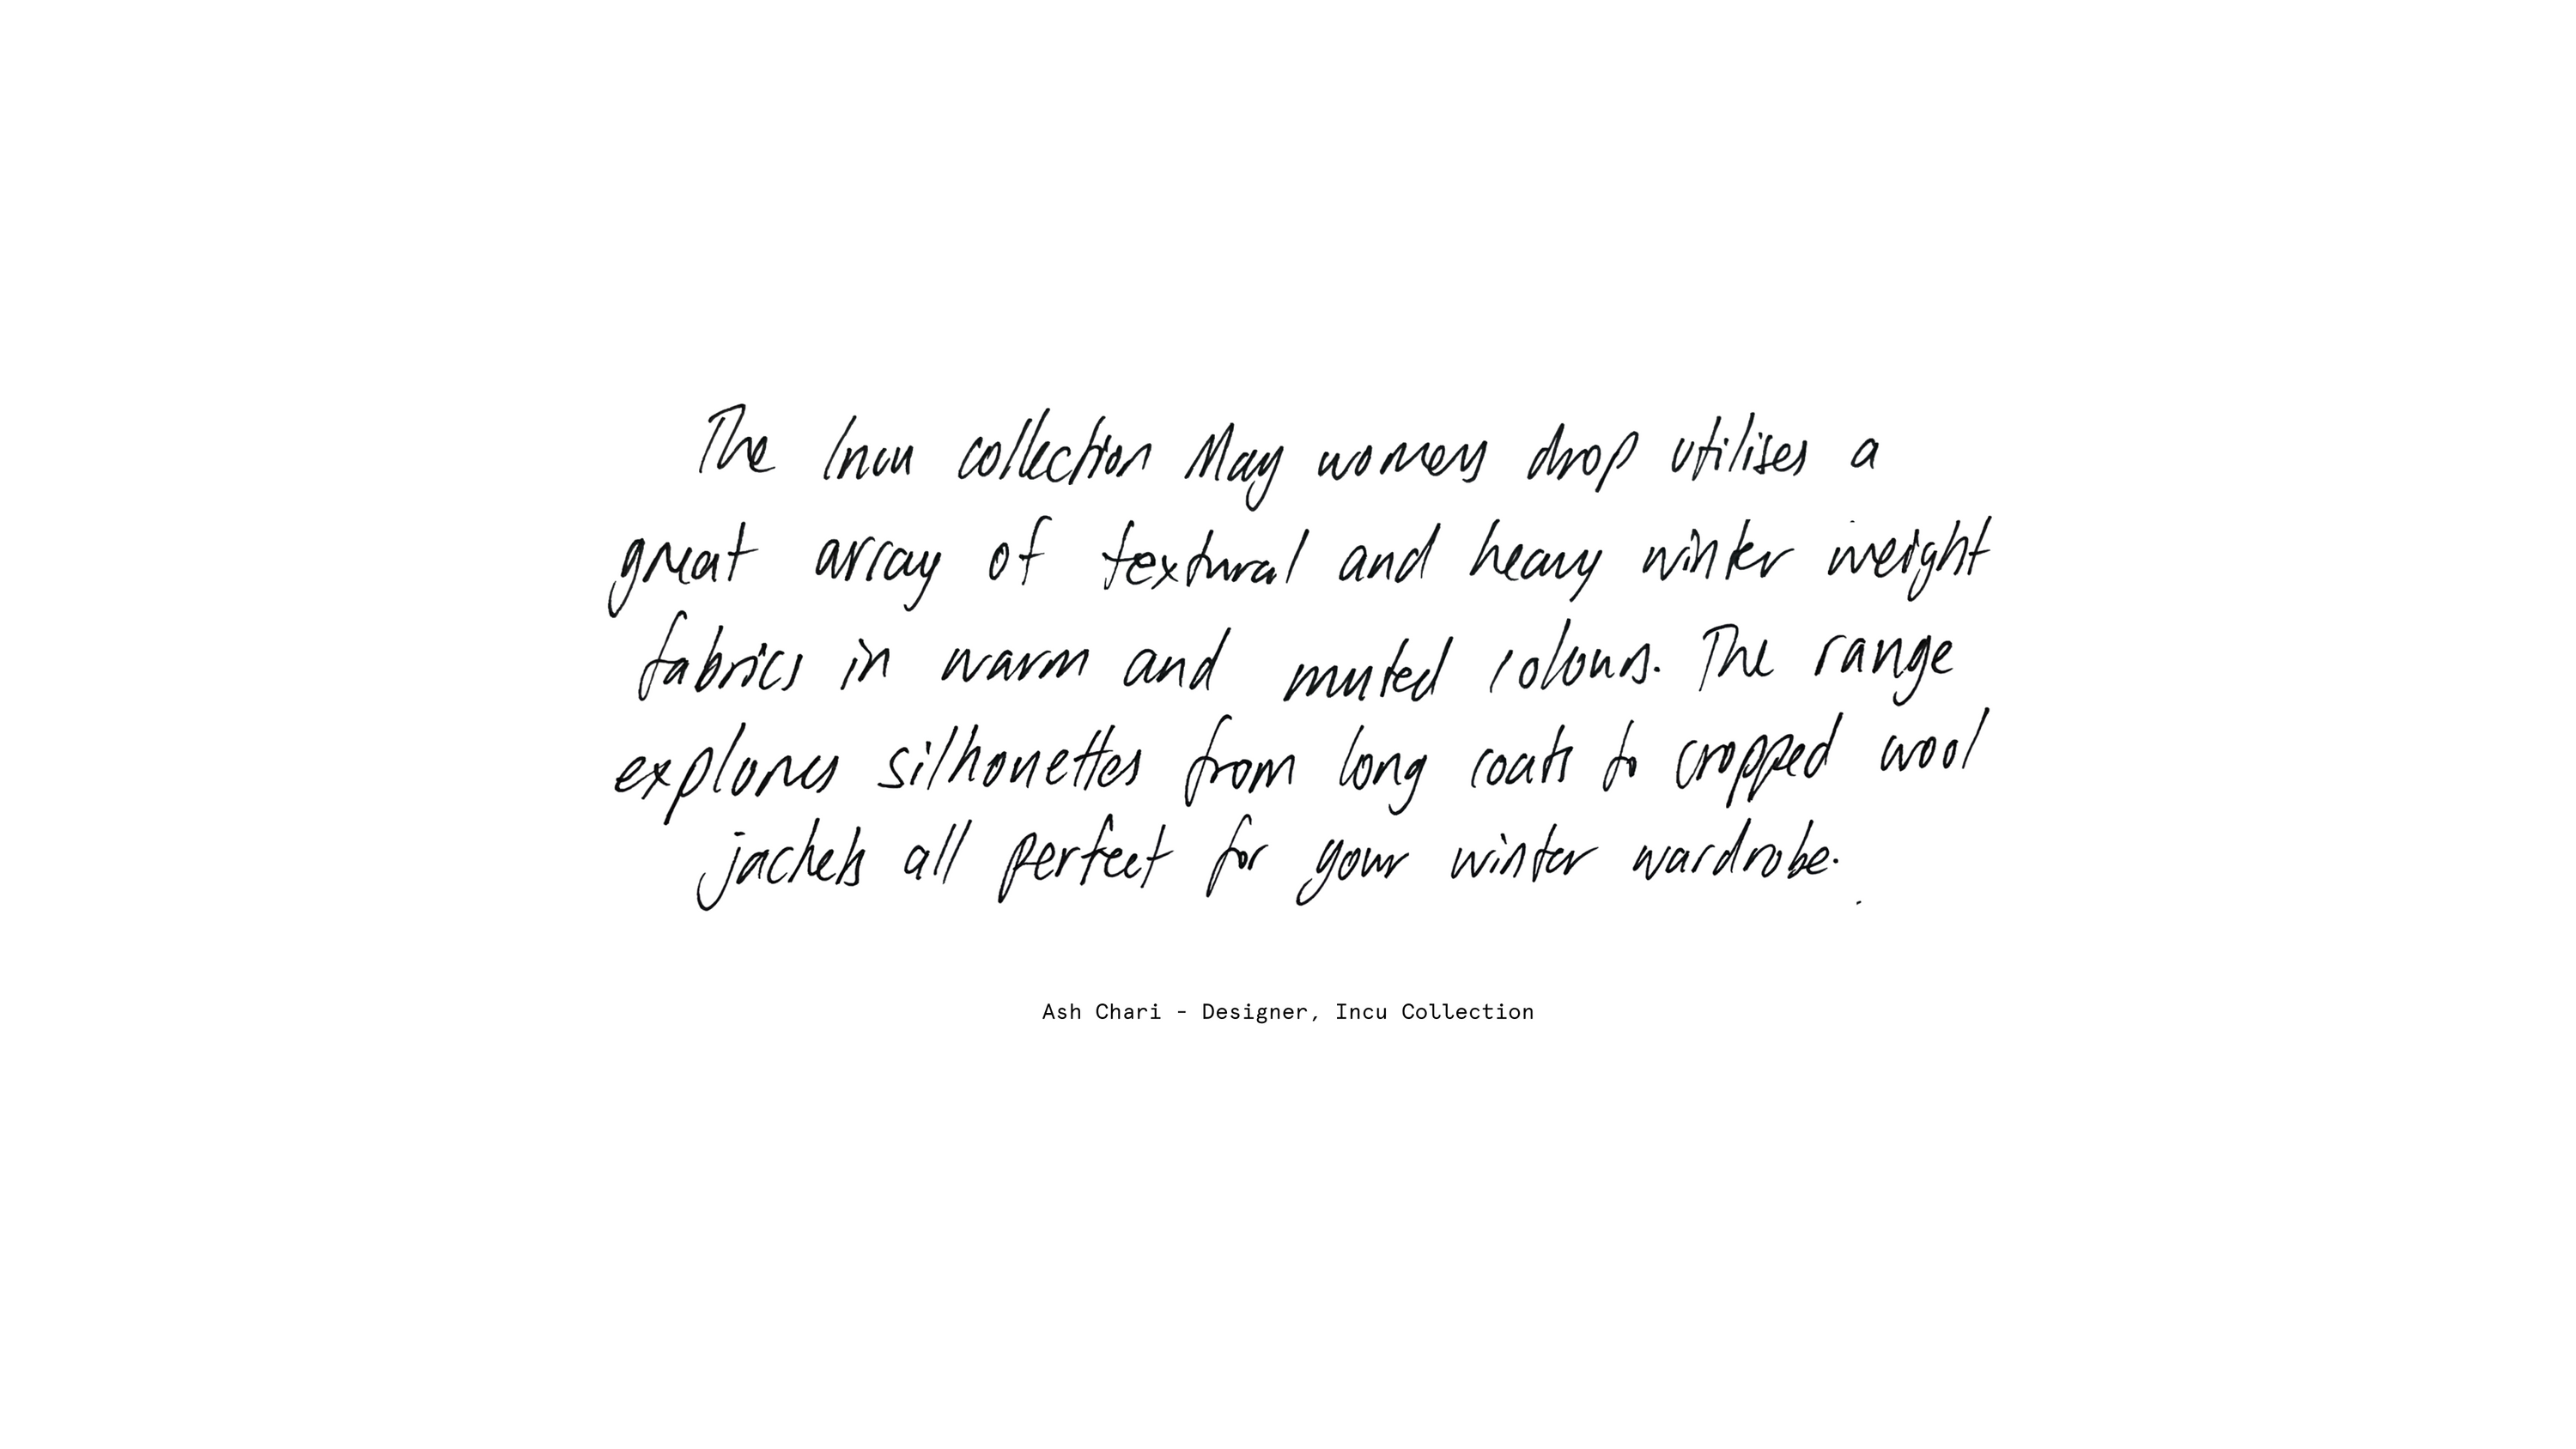 The Incu collection May womens drop utilises a
great array of textural and heavy winter weight
fabrics in warm and muted colours. The range
explores silhouettes from long coats to cropped wool
jackets all perfect for your winter wardrobe.
Ash Chari - Designer, Incu Collection